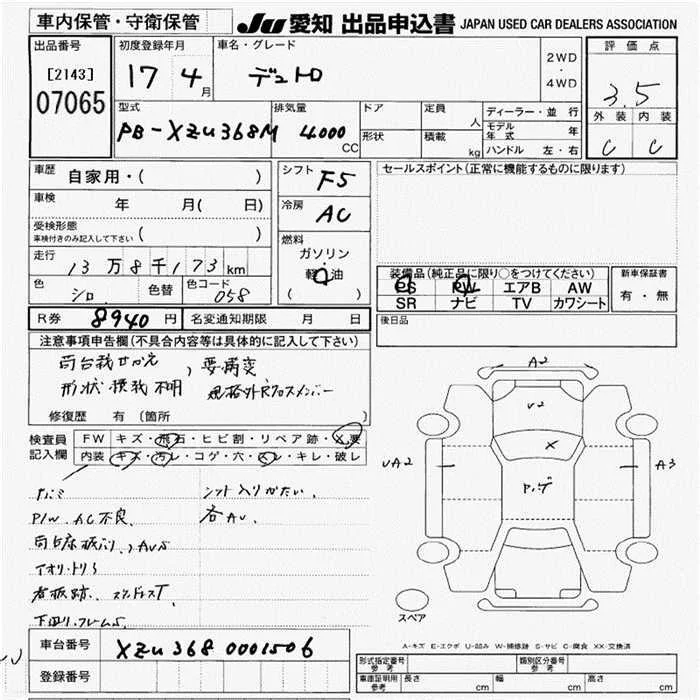 車内保管・守衛保管
JU 愛知 出品申込書 JAPAN USED CAR DEALERS ASSOCIATION
出品番号
[2143]
07065
初度登録年月
17 4月
車名・グレード
デュトロ
2WD
・
4WD
評価点
3.5
外装 内装
C C
型式
PB-XZU368M
排気量
4000
CC
ドア
形状
定員
人
積載
kg
ディーラー・並行
モデル年式 年
ハンドル 左・右
車歴
自家用・( )
車検 年 月( 日)
受検形態
車検付きのみ記入して下さい ( )
走行
13万8千173km
色
シロ
色替
色コード
058
シフト
F5
冷房
AC
燃料
ガソリン
軽油
( )
セールスポイント(正常に機能するものに限ります)
装備品(純正品に限り○をつけてください)
PS PW エアB AW
SR ナビ TV カワシート
新車保証書
有・無
後日品
R券 8940円
名変通知期限 月 日
注意事項申告欄(不具合内容等は具体的に記入して下さい)
荷台載せかえ、要構変
形状積載不明 規格外Rクロスメンバー
修復歴 有 〔箇所 〕
検査員
記入欄
FW キズ・飛石・ヒビ割・リペア跡・X要
内装 キズ・汚レ・コゲ・穴・スレ・キレ・破レ
P/W、AC不良、
シフト入りがたい、
各AU、
看板跡、
下回り、フレームS、
A2
U2
X
UA2
A3
スペア
A-キズ E-エクボ U-凹み W-補修跡 S-サビ C-腐食 XX-交換済
車台番号
XZU368 0001506
登録番号
形式指定番号
参考
類別区分番号
参考
車庫証明用
参考
長さ cm 幅 cm 高さ cm